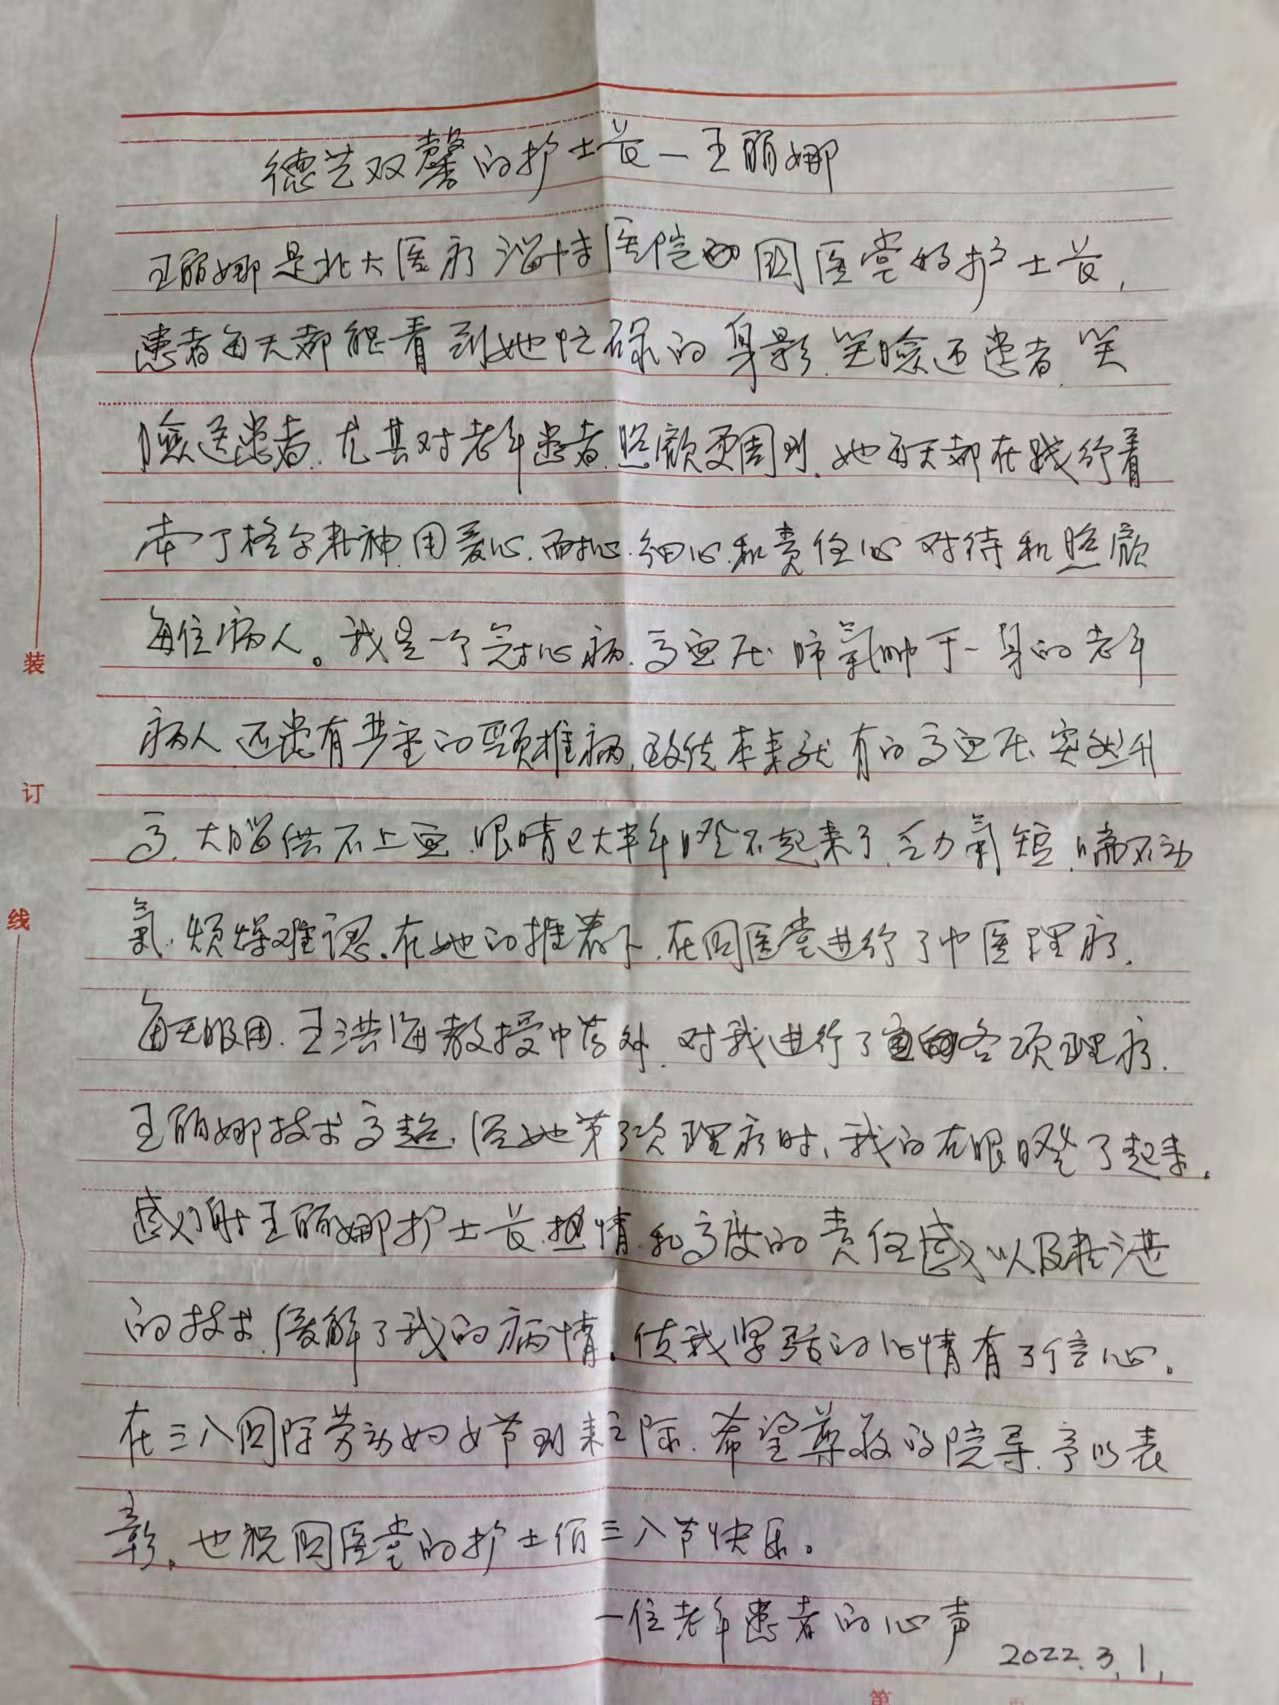 德艺双馨的护士长—王丽娜
王丽娜是北大医疗淄博医院国医堂的护士长,
患者每天都能看到她忙碌的身影.笑脸迎患者.笑
脸送患者.尤其对老年患者.照顾更周到.她每天都在践行着
南丁格尔精神.用爱心.耐心.细心.和责任心对待和照顾
每位病人。我是一个冠心病.高血压.肺氣肿于一身的老年
病人.还患有严重的颈椎病,致使本来就有的高血压.突然升
高.大脑供不上血.眼睛已大半年睁不起来了.乏力氣短.喘不动
氣.烦燥难认.在她的推荐下.在国医堂进行了中医理疗.
每天服用.王洪海教授中药外.对我进行了各项理疗.
王丽娜技术高超,经她第3次理疗时,我的右眼睁了起来.
感谢王丽娜护士长.热情.和高度的责任感以及精湛
的技术.缓解了我的病情.使我紧张的心情有了信心。
在三八国际劳动妇女节到来之际.希望尊敬的院领导.予以表
彰.也祝国医堂的护士们三八节快乐。
一位老年患者的心声
2022.3.1.
装
订
线
第